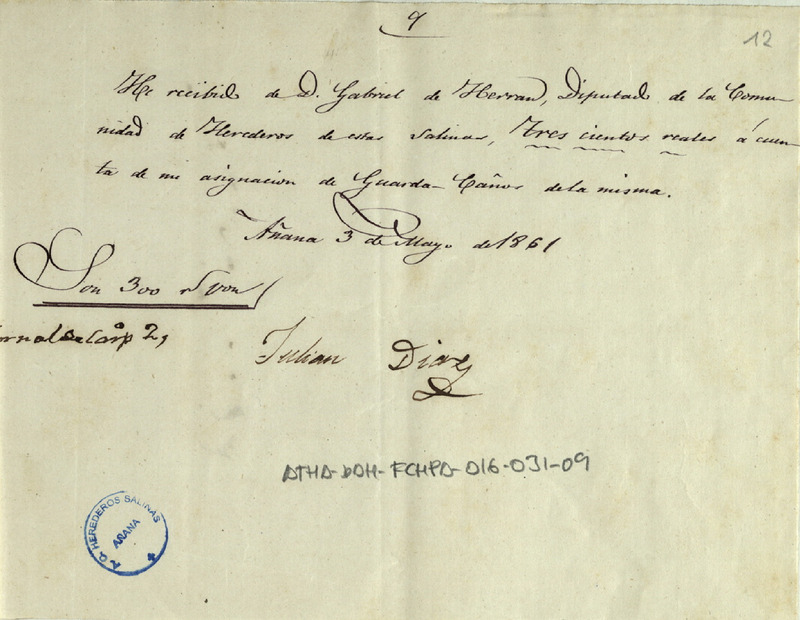 9
12
He recibido de D. Gabriel de Herran, Diputado de la Comu-
nidad de Herederos de estas Salinas, Tres cientos reales á cuen-
ta de mi asignacion de Guarda-Caños de la misma.
Añana 3 de Mayo de 1861
Son 300 rs von
Julian Diaz
ATHA-DAH-FCHPA-016-031-09
HEREDEROS SALINAS
AÑANA